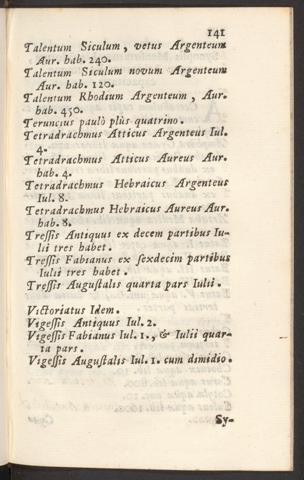 141
Talentum Siculum, vetus Argenteum
Aur. hab. 240.
Talentum Siculum novum Argenteum
Aur. hab. 120.
Talentum Rhodium Argenteum, Aur.
hab. 450.
Teruncius paulò plùs quatrino.
Tetradrachmus Atticus Argenteus Iul.
4.
Tetradrachmus Atticus Aureus Aur.
hab. 4.
Tetradrachmus Hebraicus Argenteus
Iul. 8.
Tetradrachmus Hebraicus Aureus Aur.
hab. 8.
Tressis Antiquus ex decem partibus Iu-
lii tres habet.
Tressis Fabianus ex sexdecim partibus
Iulii tres habet.
Tressis Augustalis quarta pars Iulii.
Victoriatus Idem.
Vigessis Antiquus Iul. 2.
Vigessis Fabianus Iul. 1., & Iulii quar-
ta pars.
Vigessis Augustalis Iul. 1. cum dimidio.
Sy-